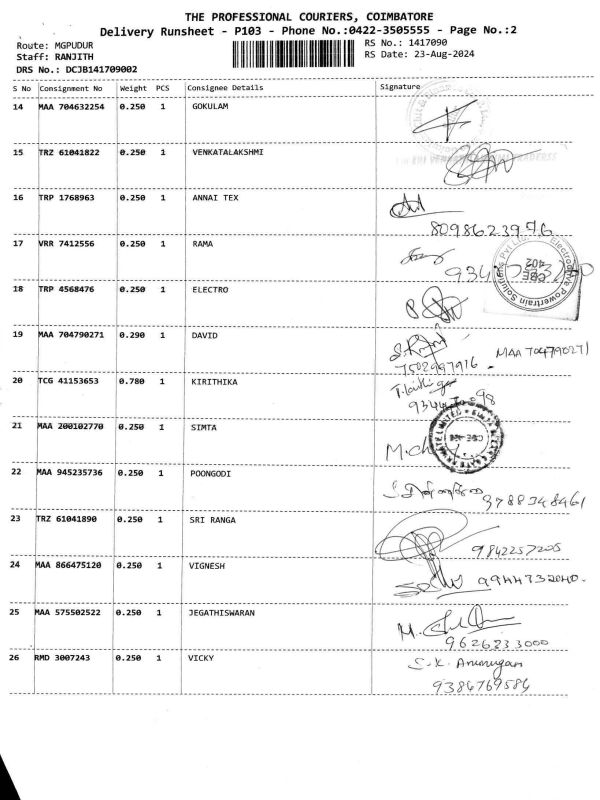 THE PROFESSIONAL COURIERS, COIMBATORE
Delivery Runsheet - P103 - Phone No.:0422-3505555 - Page No.:2
Route: MGPUDUR
RS No.: 1417090
Staff: RANJITH
RS Date: 23-Aug-2024
DRS No.: DCJB141709002
S No Consignment No Weight PCS Consignee Details Signature
14 MAA 704632254 0.250 1 GOKULAM
15 TRZ 61041822 0.250 1 VENKATALAKSHMI
16 TRP 1768963 0.250 1 ANNAI TEX
8098623976
17 VRR 7412556 0.250 1 RAMA
Electrodrive Powertrain Solutions Pvt Ltd
CBE
402
18 TRP 4568476 0.250 1 ELECTRO
19 MAA 704790271 0.290 1 DAVID
MAA 704790271
7502997916
20 TCG 41153653 0.780 1 KIRITHIKA
21 MAA 200102770 0.250 1 SIMTA
22 MAA 945235736 0.250 1 POONGODI
9788348461
23 TRZ 61041890 0.250 1 SRI RANGA
9842257205
24 MAA 866475120 0.250 1 VIGNESH
9944732040.
25 MAA 575502522 0.250 1 JEGATHISWARAN
9626233000
26 RMD 3007243 0.250 1 VICKY
S.K. Arumugam
9384769584